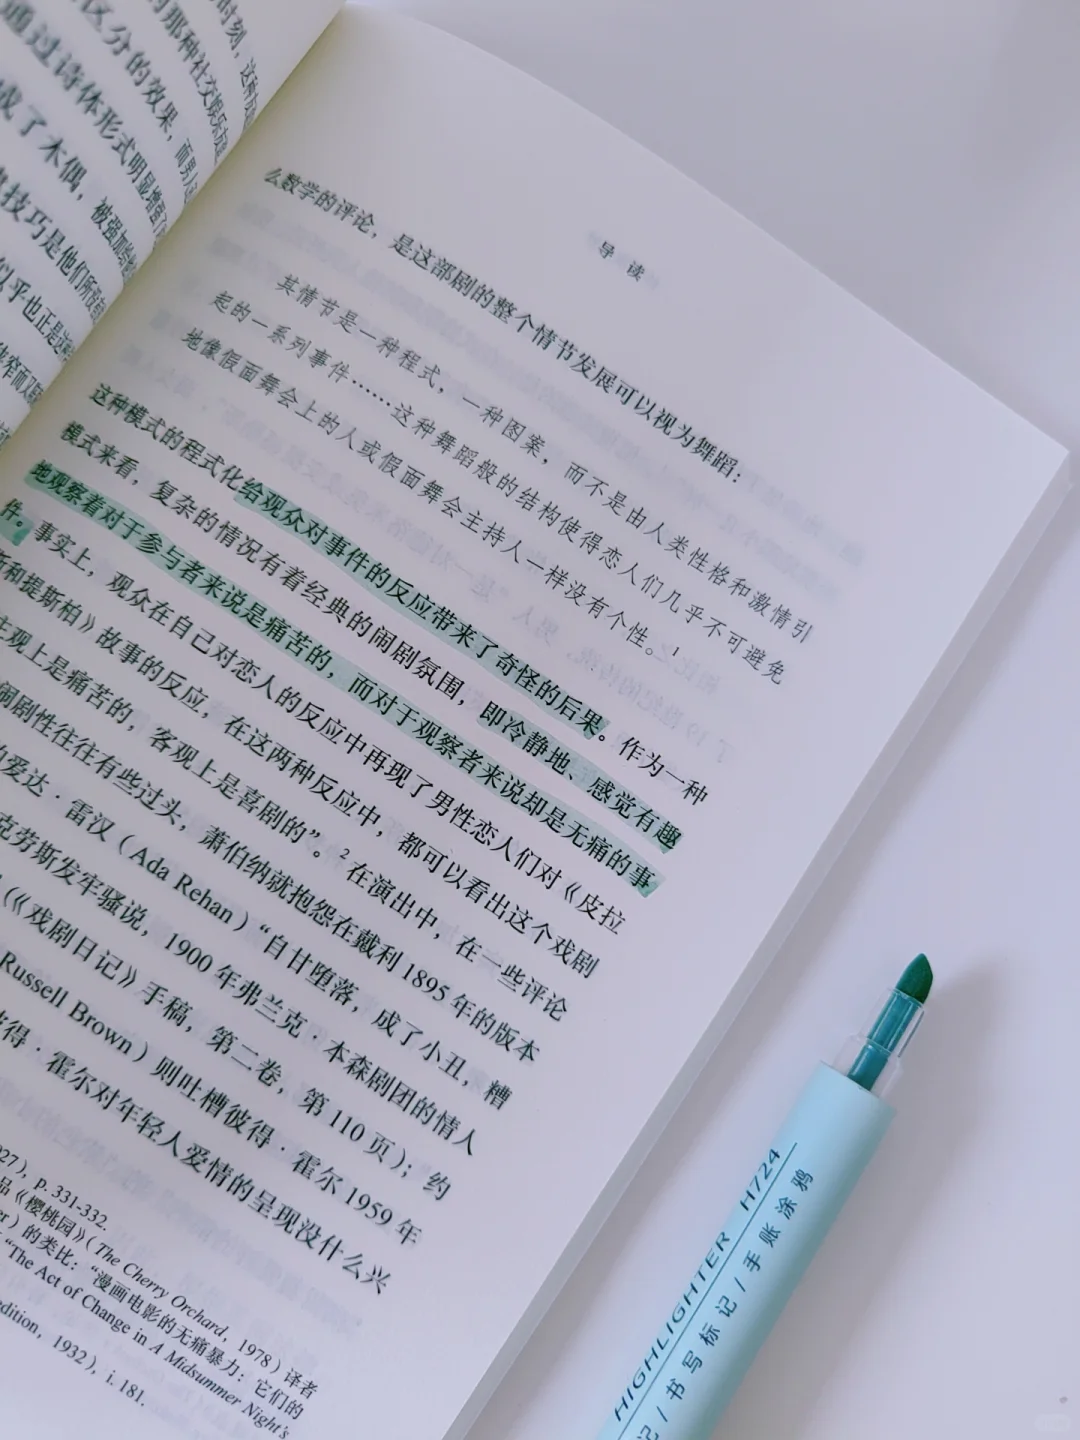 时刻，这种
的那种社交娱乐方
区分的效果，而男
通过诗体形式明显增强了
成了木偶，被强加给
技巧是他们所没有
似乎也正是这
窄而又
导 读
么数学的评论，是这部剧的整个情节发展可以视为舞蹈：
其情节是一种程式，一种图案，而不是由人类性格和激情引
起的一系列事件……这种舞蹈般的结构使得恋人们几乎不可避免
地像假面舞会上的人或假面舞会主持人一样没有个性。1
这种模式的程式化给观众对事件的反应带来了奇怪的后果。作为一种
模式来看，复杂的情况有着经典的闹剧氛围，即冷静地、感觉有趣
地观察着对于参与者来说是痛苦的，而对于观察者来说却是无痛的事
件。事实上，观众在自己对恋人的反应中再现了男性恋人们对《皮拉
斯和提斯柏》故事的反应，在这两种反应中，都可以看出这个戏剧
主观上是痛苦的，客观上是喜剧的”。2 在演出中，在一些评论
闹剧性往往有些过头，萧伯纳就抱怨在戴利 1895 年的版本
的爱达·雷汉（Ada Rehan）“自甘堕落，成了小丑，糟
克劳斯发牢骚说，1900 年弗兰克·本森剧团的情人
（《戏剧日记》手稿，第二卷，第 110 页）；约
Russell Brown）则吐槽彼得·霍尔 1959 年
得·霍尔对年轻人爱情的呈现没什么兴
27), p. 331-332.
品《樱桃园》（The Cherry Orchard，1978）译者
er）的类比：“漫画电影的无痛暴力：它们的
“The Act of Change in A Midsummer Night's
edition, 1932), i. 181.
HIGHLIGHTER H724
记/书写标记/手账涂鸦